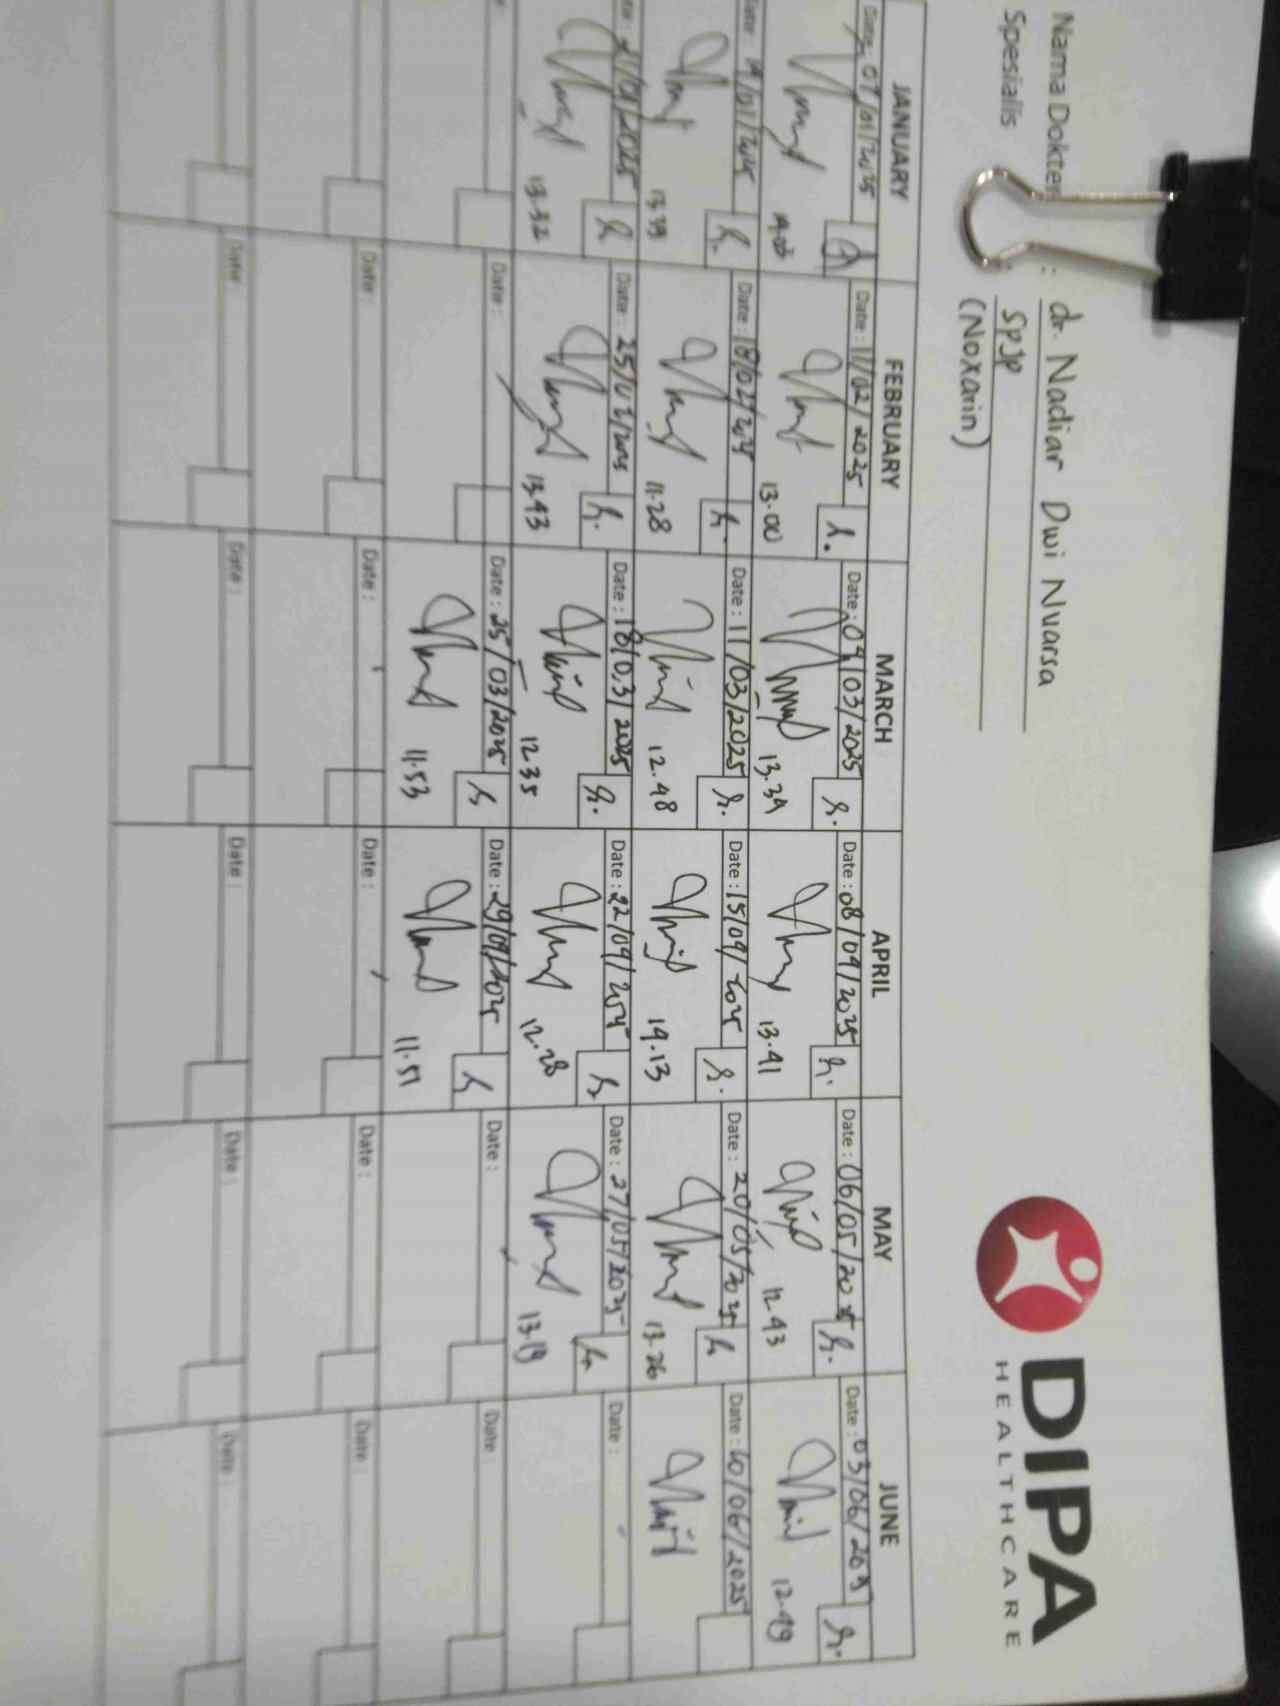 Nama Dokter : dr. Nadiar Dwi Nuarsa
Spesialis : SpJP
(Noxarin)
DIPA
HEALTHCARE
JANUARY FEBRUARY MARCH APRIL MAY JUNE
Date: 07/01/2025 Date: 11/02/2025 Date: 04/03/2025 Date: 08/04/2025 Date: 06/05/2025 Date: 03/06/2025
14.03 13.00 13.34 13.41 12.43 12.49
Date: 14/01/2025 Date: 18/02/2025 Date: 11/03/2025 Date: 15/04/2025 Date: 20/05/2025 Date: 10/06/2025
13.39 11.28 12.48 14.13 13.26
21/01/2025 Date: 25/02/2025 Date: 18/03/2025 Date: 22/04/2025 Date: 27/05/2025 Date:
13.32 13.43 12.35 12.28 13.19
Date: Date: 25/03/2025 Date: 29/04/2025 Date: Date:
11.53 11.51
Date: Date: Date: Date: Date:
Date: Date: Date: Date: Date: